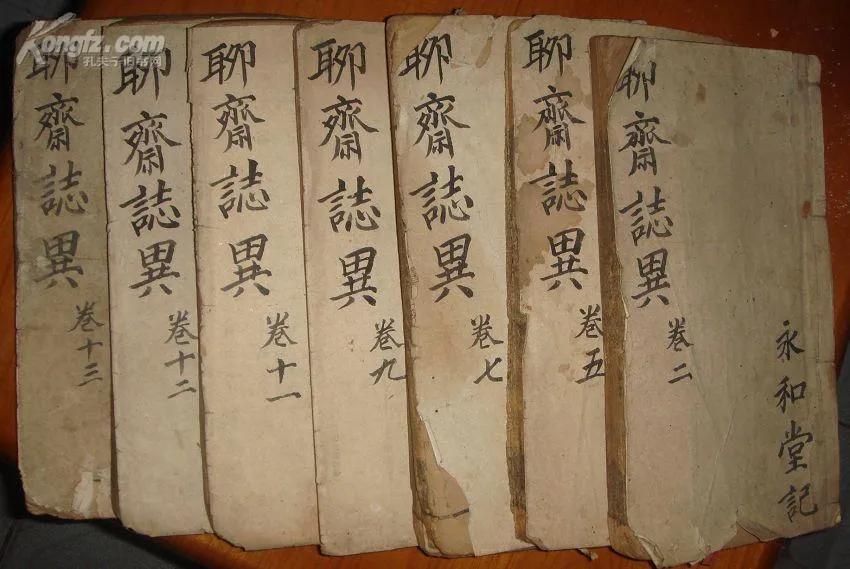 Kongfz.com
孔夫子旧书网
聊齋誌異
卷二
永和堂記
聊齋誌異
卷五
聊齋誌異
卷七
聊齋誌異
卷九
聊齋誌異
卷十一
聊齋誌異
卷十二
聊齋誌異
卷十三